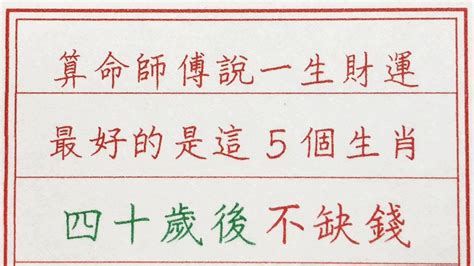 算命師傅說一生財運
最好的是這5個生肖
四十歲後不缺錢